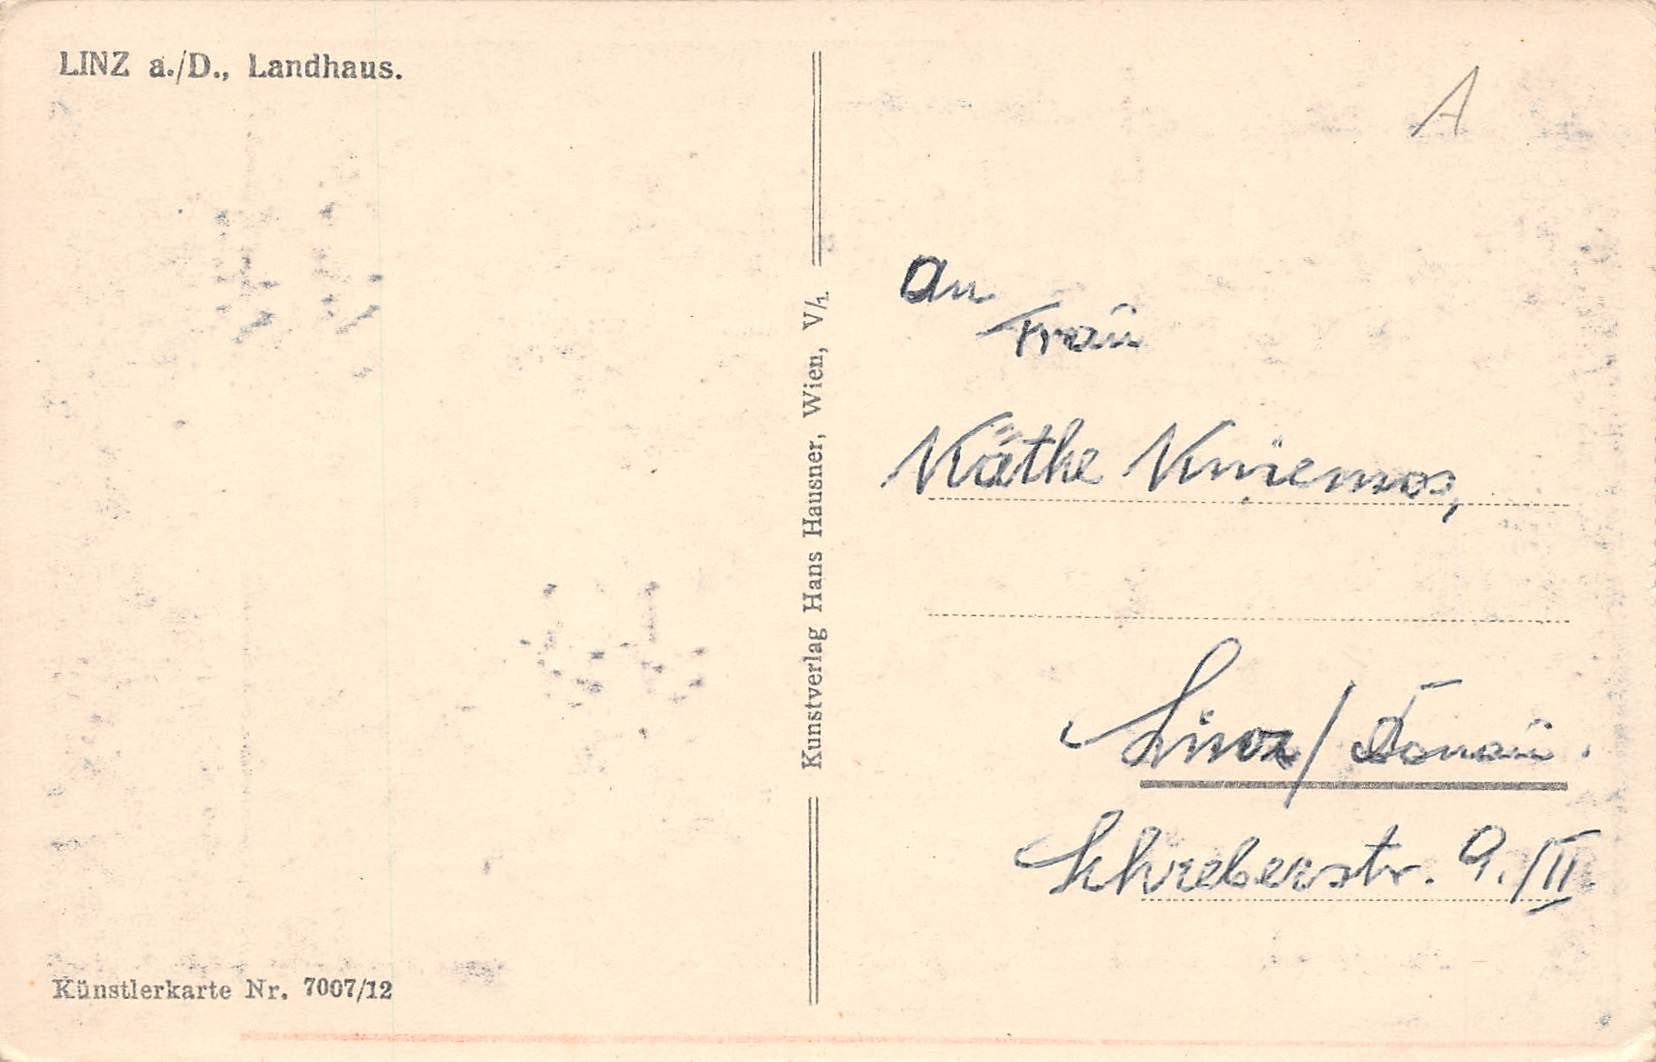 LINZ a./D., Landhaus.
A
An
Frau
Käthe
Linz/Donau.
Schreberstr. 9./II.
Kunstverlag Hans Hausner, Wien, V/1.
Künstlerkarte Nr. 7007/12